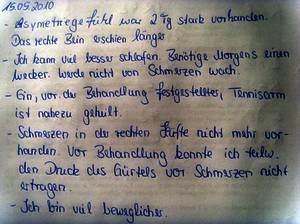 15.05.2010
- Asymetriegefühl war 2 Tg stark vorhanden.
Das rechte Bein erschien länger
- Ich kann viel besser schlafen. Benötige Morgens einen
Wecker. Werde nicht von Schmerzen wach.
- Ein, vor der Behandlung festgestellter, Tennisarm
ist nahezu geheilt.
- Schmerzen in der rechten Hüfte nicht mehr vor-
handen. Vor Behandlung konnte ich teilw.
den Druck des Gürtels vor Schmerzen nicht
ertragen.
- Ich bin viel beweglicher.